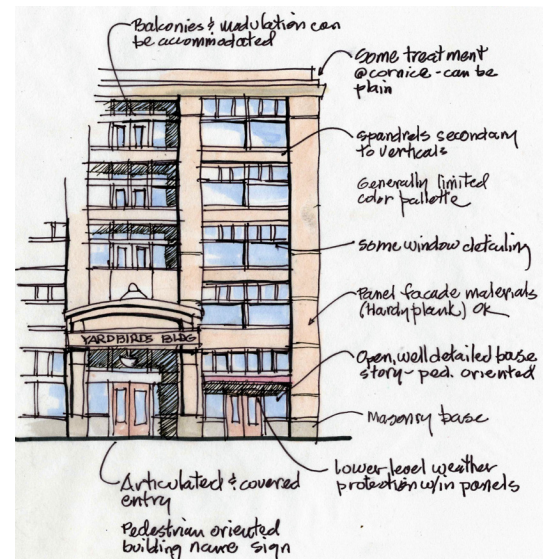 Balkonies & modulation can
be accommodated
Some treatment
@cornice - can be
plain
spandrels secondary
to verticals
Generally limited
color pallette
some window detailing
Panel facade materials
(Hardyplank) OK
Open, well detailed base
story - ped. oriented
Masonry base
Lower-level weather
protection w/in panels
YARDBIRDS BLDG
Articulated & covered
entry
Pedestrian oriented
building name sign